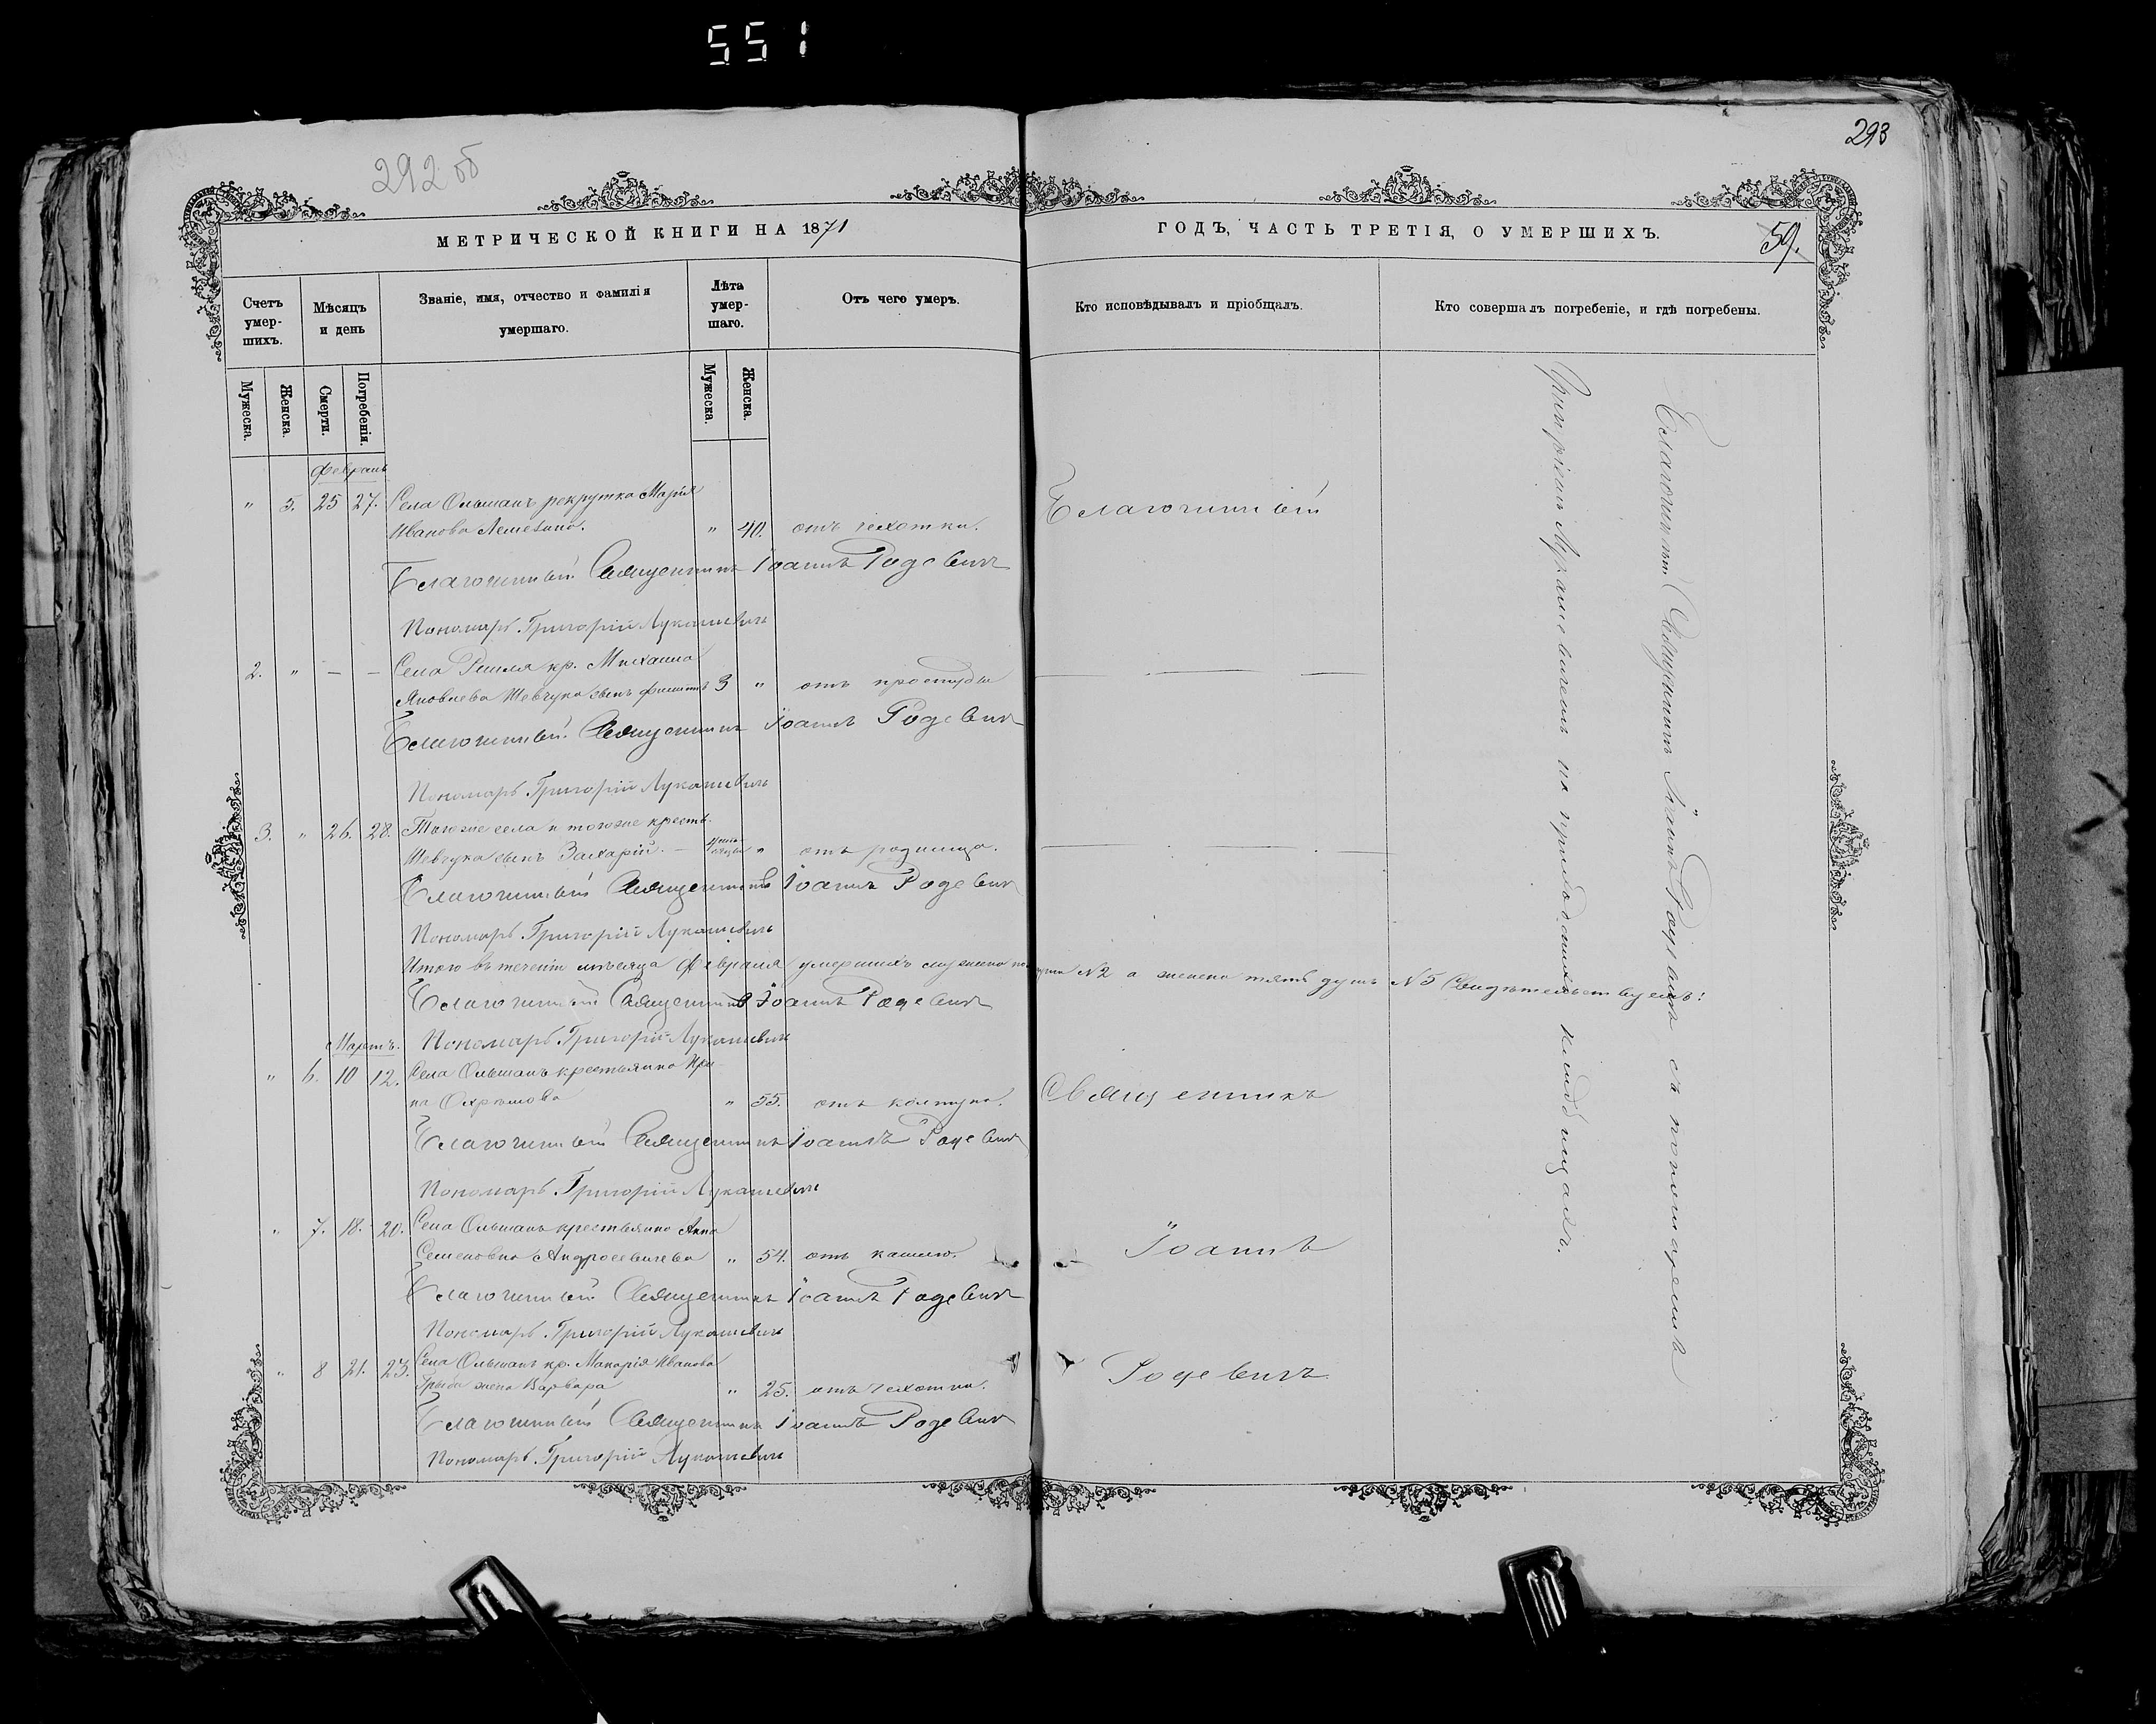 551
292 об
293
МЕТРИЧЕСКОЙ КНИГИ НА 1871
ГОДЪ, ЧАСТЬ ТРЕТІЯ, О УМЕРШИХЪ.
59.
Счетъ умер-шихъ.
Мѣсяцъ и день
Званіе, имя, отчество и фамилія умершаго.
Лѣта умер-шаго.
Отъ чего умеръ.
Кто исповѣдывалъ и пріобщалъ.
Кто совершалъ погребеніе, и гдѣ погребены.
Мужеска.
Женска.
Смерти.
Погребенія.
Мужеска.
Женска.
Февраль
" 5. 25 27. Села Ольманъ рекрутка Марія
Иванова " 40. отъ чехотки.
Благочинный
Благочинный Священникъ Іоаннъ Родевич
Пономарь Григорій Лукашевичъ
2. " — — Села кр. Михаила
Яковлева Шевчука сынъ Филиппъ 3 " отъ простуды
Благочинный Священникъ Іоаннъ Родевич
Пономарь Григорій Лукашевичъ
3. " 26. 28. Тогоже села и тогоже крест.
Шевчука сынъ Захарій. — " отъ родимца.
Благочинный Священникъ Іоаннъ Родевич
Пономарь Григорій Лукашевичъ
Итого въ теченіи мѣсяца Февраля умершихъ мужеска № 2 а женска пять душъ № 5 Свидѣтельствуемъ:
Благочинный Священникъ Іоаннъ Родевич
Пономарь Григорій Лукашевичъ
Мартъ.
" 6. 10 12. Села Ольманъ крестьянка Ири-
на " 55. отъ колтуна.
Священникъ
Благочинный Священникъ Іоаннъ Родевич
Пономарь Григорій Лукашевичъ
" 7. 18. 20. Села Ольманъ крестьянка Анна
Семеновна Андросевичева " 54. отъ кашлю.
Іоаннъ
Благочинный Священникъ Іоаннъ Родевич
Пономарь Григорій Лукашевичъ
" 8 21. 23. Села Ольманъ кр. Макарія Иванова
жена Варвара " 25. отъ чехотки.
Родевичъ
Благочинный Священникъ Іоаннъ Родевич
Пономарь Григорій Лукашевичъ
Благочинный Священникъ Іоаннъ Родевичъ съ пономаремъ
Григоріемъ Лукашевичемъ на приходскихъ кладбищахъ.